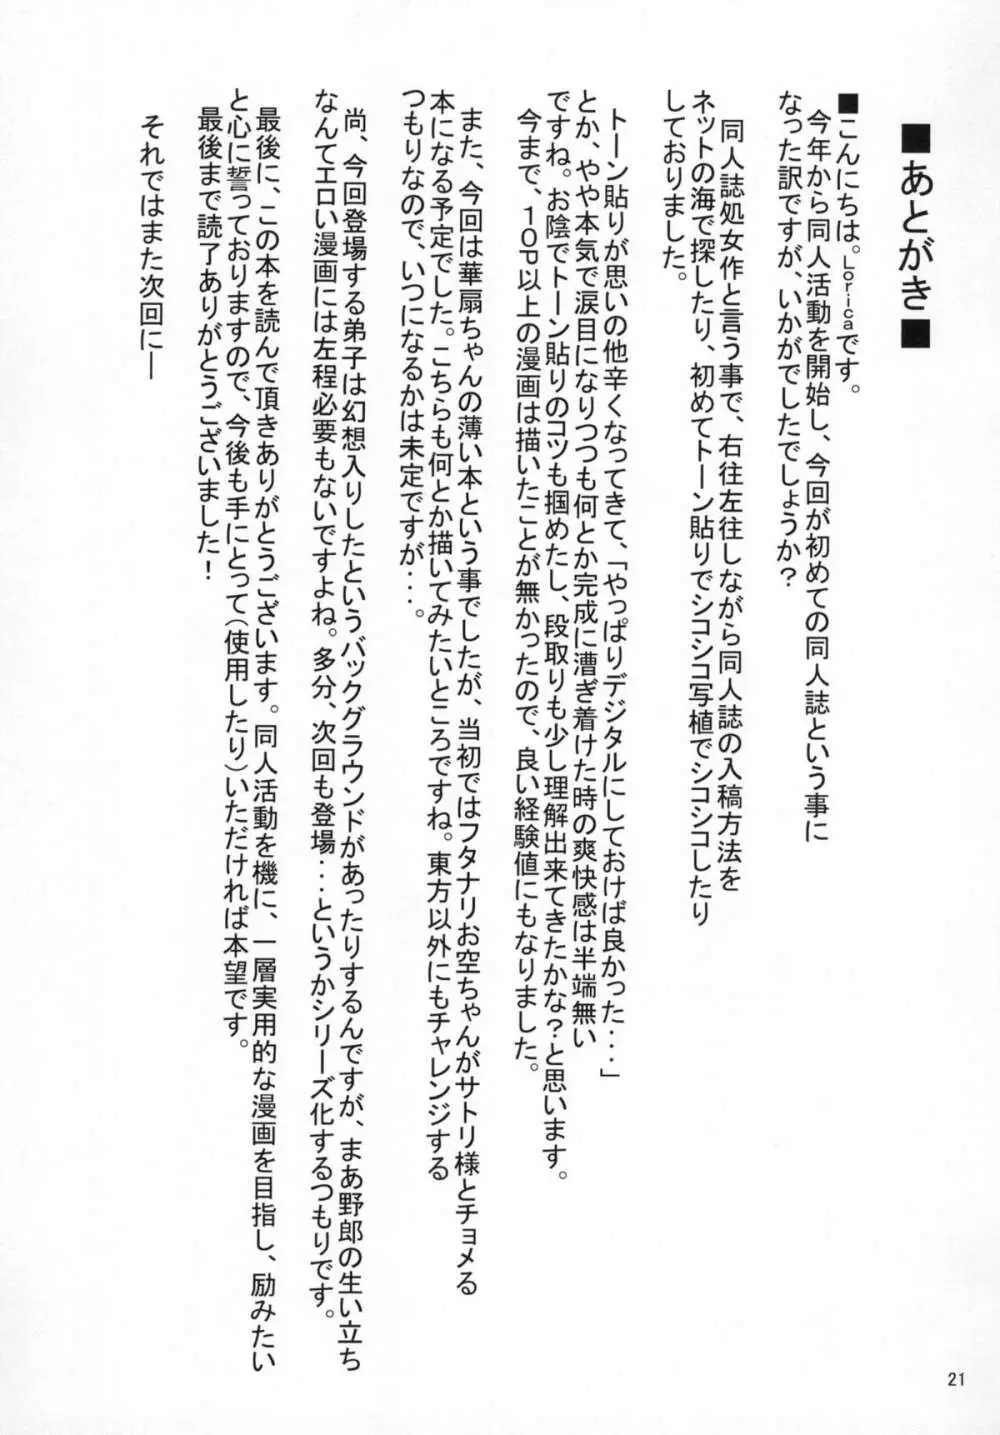 ■あとがき■
■こんにちは。Loricaです。
今年から同人活動を開始し、今回が初めての同人誌という事に
なった訳ですが、いかがでしたでしょうか？
同人誌処女作と言う事で、右往左往しながら同人誌の入稿方法を
ネットの海で探したり、初めてトーン貼りでシコシコ写植でシコシコしたり
しておりました。
トーン貼りが思いの他辛くなってきて、「やっぱりデジタルにしておけば良かった・・・」
とか、やや本気で涙目になりつつも何とか完成に漕ぎ着けた時の爽快感は半端無い
ですね。お陰でトーン貼りのコツも掴めたし、段取りも少し理解出来てきたかな？と思います。
今まで、１０Ｐ以上の漫画は描いたことが無かったので、良い経験値にもなりました。
また、今回は華扇ちゃんの薄い本という事でしたが、当初ではフタナリお空ちゃんがサトリ様とチョメる
本になる予定でした。こちらも何とか描いてみたいところですね。東方以外にもチャレンジする
つもりなので、いつになるかは未定ですが・・・。
尚、今回登場する弟子は幻想入りしたというバックグラウンドがあったりするんですが、まあ野郎の生い立ち
なんてエロい漫画には左程必要もないですよね。多分、次回も登場・・・というかシリーズ化するつもりです。
最後に、この本を読んで頂きありがとうございます。同人活動を機に、一層実用的な漫画を目指し、励みたい
と心に誓っておりますので、今後も手にとって（使用したり）いただければ本望です。
最後まで読了ありがとうございました！
それではまた次回に―
21